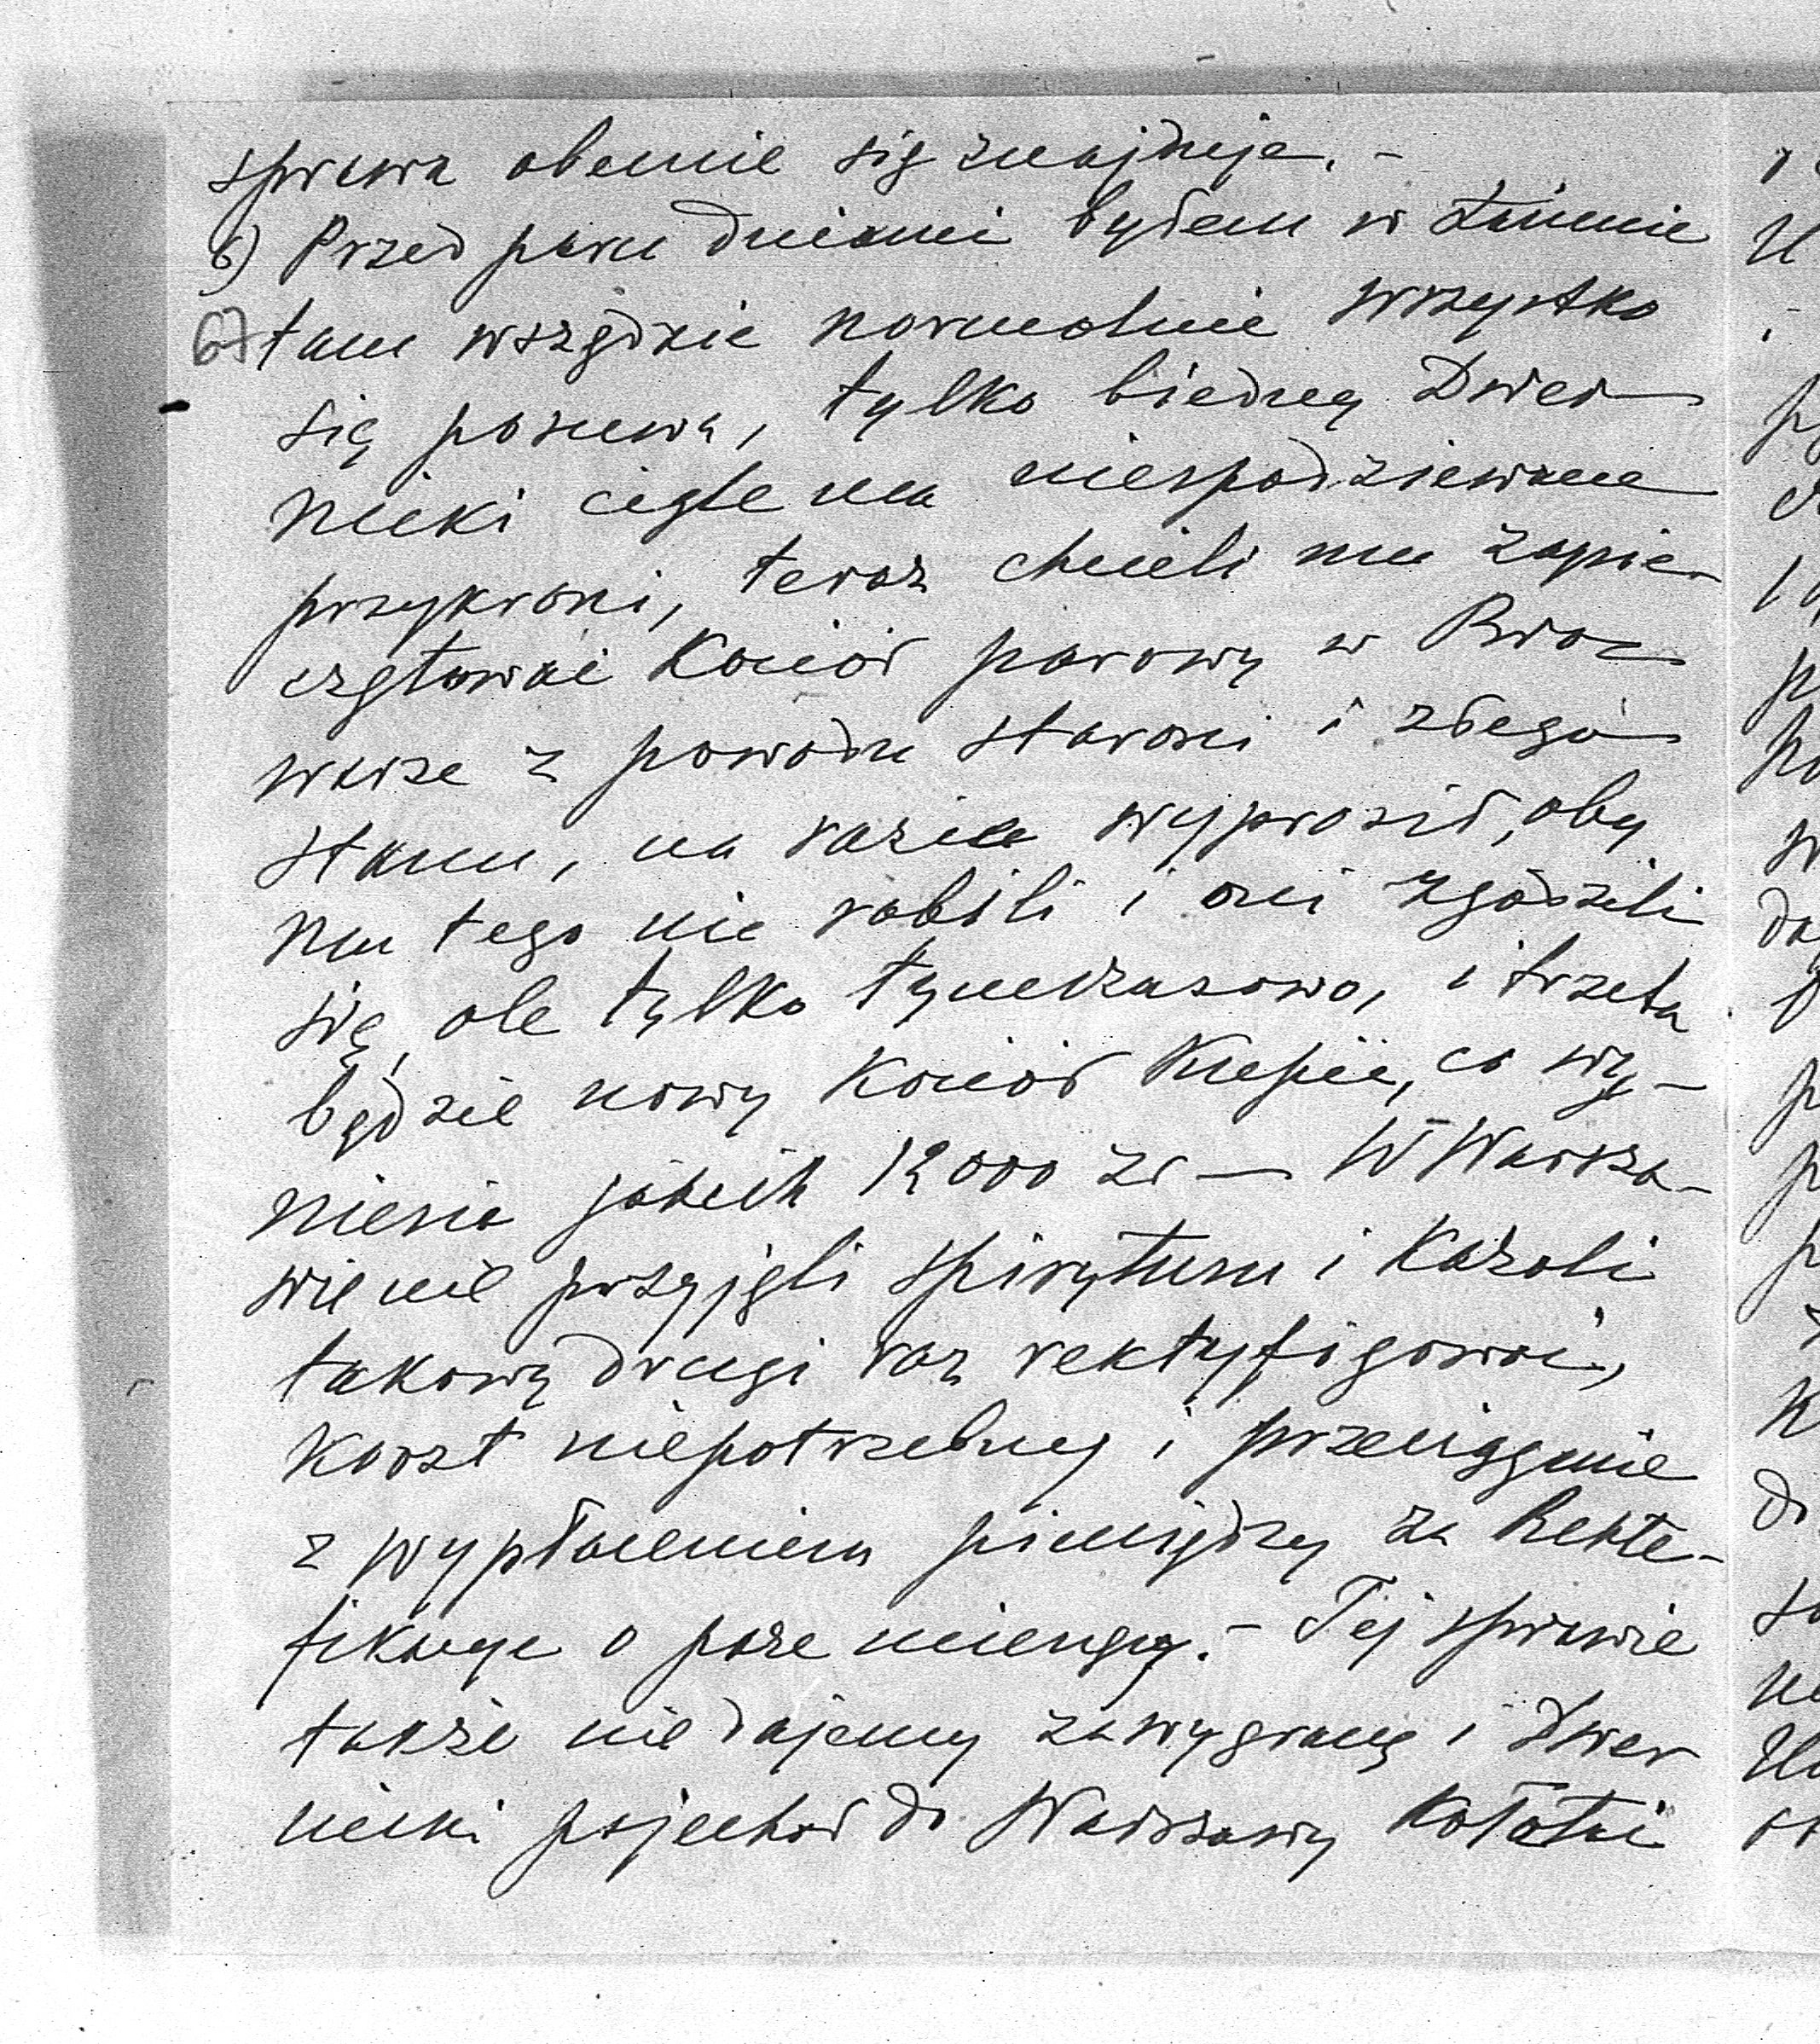 sprawa obecnie się znajduje. -
6) Przed paru dniami byłem w Łańcucie
67 tam wszędzie normalnie wszystko
się posuwa, tylko biedny Dwer
nicki ciągle ma niespodziewane
przykrości, teraz chcieli mu zapie-
czętować Kocioł parowy w Bro-
warze z powodu starości i złego
stanu, na razie wyprosił, aby
mu tego nie robili i oni zgodzili
się, ale tylko tymczasowo, i trzeba
będzie nowy Kocioł Kupić, co wy-
niesie jakich 12000 zł — W Warsza-
wie nie przyjęli spirytusu i Kazali
takowy drugi raz rektyfigować,
Koszt niepotrzebny i przeciągnie
z wypłaceniem pieniędzy za Rekte-
fikacye o parę miesięcy. - Tej sprawie
także nie dajemy za wygraną i Dwer
nicki pojechał do Warszawy Kołatać